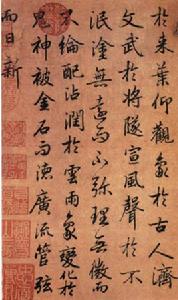 於来葉仰觀象於古人濟
文武於將隊宣風聲於不
泯塗無遠而不弥理無微而
不綸配沾潤於雲雨象變化於
鬼神被金石而德廣流管弦
而日新